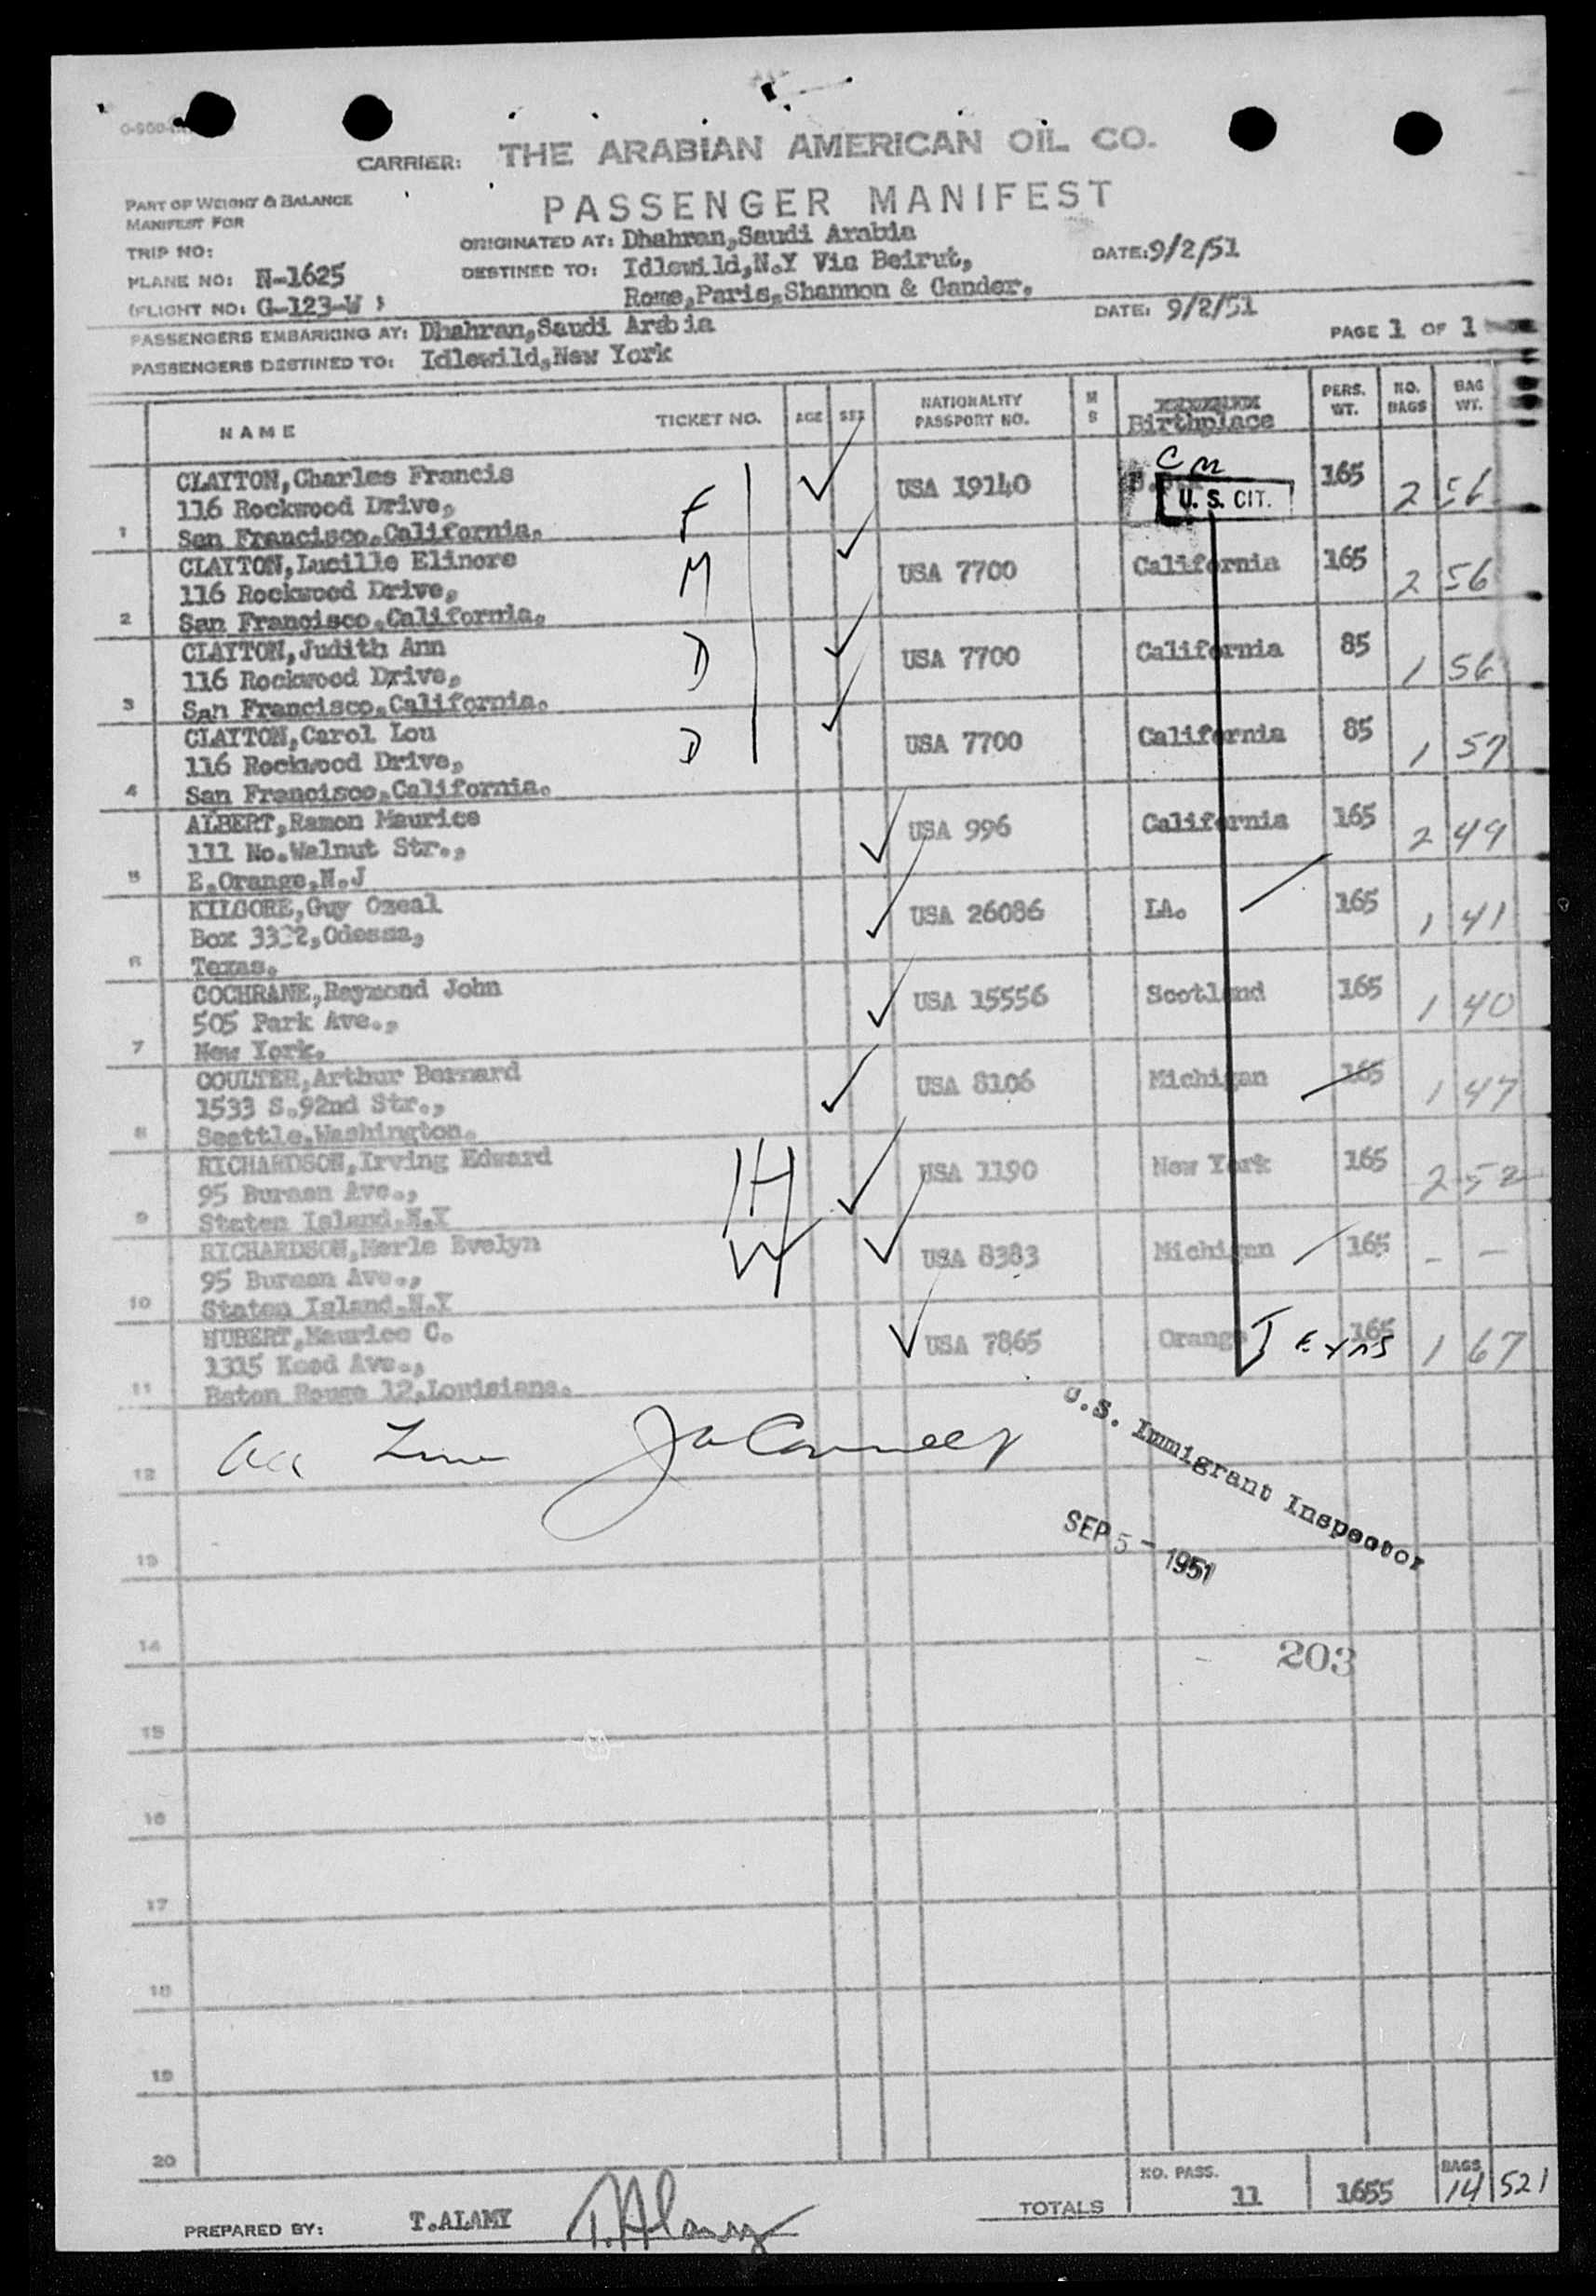 CARRIER: THE ARABIAN AMERICAN OIL CO.
PASSENGER MANIFEST
PART OF WEIGHT & BALANCE
MANIFEST FOR
TRIP NO:
PLANE NO: N-1625
(FLIGHT NO: G-123-W )
ORIGINATED AT: Dhahran,Saudi Arabia
DATE: 9/2/51
DESTINED TO: Idlewild,N.Y Via Beirut,
Rome,Paris,Shannon & Gander.
PASSENGERS EMBARKING AT: Dhahran,Saudi Arabia
DATE: 9/2/51
PASSENGERS DESTINED TO: Idlewild,New York
PAGE 1 OF 1
NAME TICKET NO. AGE SEX NATIONALITY PASSPORT NO. M S Birthplace PERS. WT. NO. BAGS BAG WT.
CLAYTON,Charles Francis
116 Rockwood Drive, F USA 19140 U. S. CIT. 165 2 56
1 San Francisco,California.
CLAYTON,Lucille Elinore
116 Rockwood Drive, M USA 7700 California 165 2 56
2 San Francisco,California.
CLAYTON,Judith Ann
116 Rockwood Drive, D USA 7700 California 85 1 56
3 San Francisco,California.
CLAYTON,Carol Lou
116 Rockwood Drive, D USA 7700 California 85 1 57
4 San Francisco,California.
ALBERT,Ramon Maurice
111 No.Walnut Str., USA 996 California 165 2 49
5 E.Orange,N.J
KILGORE,Guy Ozeal
Box 3332,Odessa, USA 26086 LA. 165 1 41
6 Texas.
COCHRANE,Raymond John
505 Park Ave., USA 15556 Scotland 165 1 40
7 New York.
COULTER,Arthur Bernard
1533 S.92nd Str., USA 8106 Michigan 165 1 47
8 Seattle,Washington.
RICHARDSON,Irving Edward
95 Burman Ave., H USA 1190 New York 165 2 52
9 Staten Island,N.Y
RICHARDSON,Merle Evelyn
95 Burman Ave., W USA 8383 Michigan 165 - -
10 Staten Island,N.Y
HUBERT,Maurice C.
1315 Keed Ave., USA 7865 Orange Texas 165 1 67
11 Baton Rouge 12,Louisiana.
U.S. Immigrant Inspector
12
SEP 5 - 1951
13
14
203
15
16
17
18
19
20
PREPARED BY: T.ALAMY T.Alamy
TOTALS NO. PASS. 11 1655 BAGS 14 521